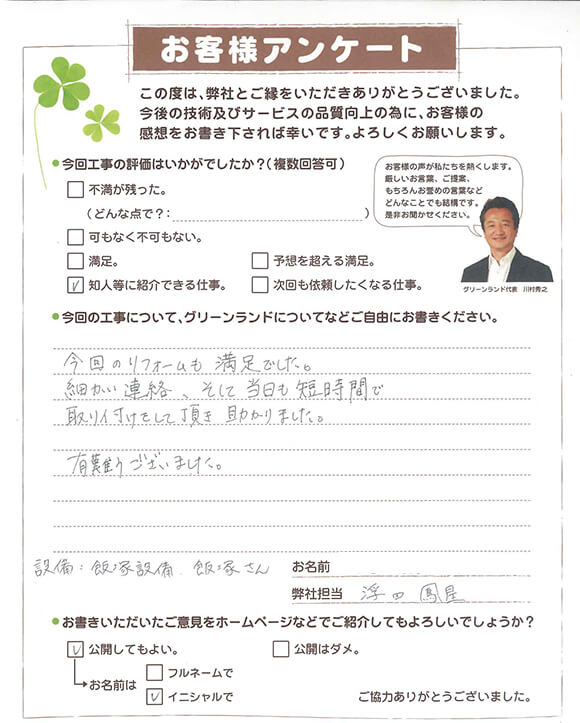 お客様アンケート
この度は、弊社とご縁をいただきありがとうございました。
今後の技術及びサービスの品質向上の為に、お客様の
感想をお書き下されば幸いです。よろしくお願いします。
今回工事の評価はいかがでしたか?(複数回答可)
不満が残った。
(どんな点で?: )
可もなく不可もない。
満足。
予想を超える満足。
知人等に紹介できる仕事。
次回も依頼したくなる仕事。
お客様の声が私たちを熱くします。
厳しいお言葉、ご提案、
もちろんお誉めの言葉など
どんなことでも結構です。
是非お聞かせください。
グリーンランド代表 川村秀之
今回の工事について、グリーンランドについてなどご自由にお書きください。
今回のリフォームも満足でした。
細かい連絡、そして当日も短時間で
取り付けをして頂き助かりました。
有難うございました。
設備:飯塚設備 飯塚さん
お名前
弊社担当 浮田
お書きいただいたご意見をホームページなどでご紹介してもよろしいでしょうか?
公開してもよい。
公開はダメ。
お名前は
フルネームで
イニシャルで
ご協力ありがとうございました。